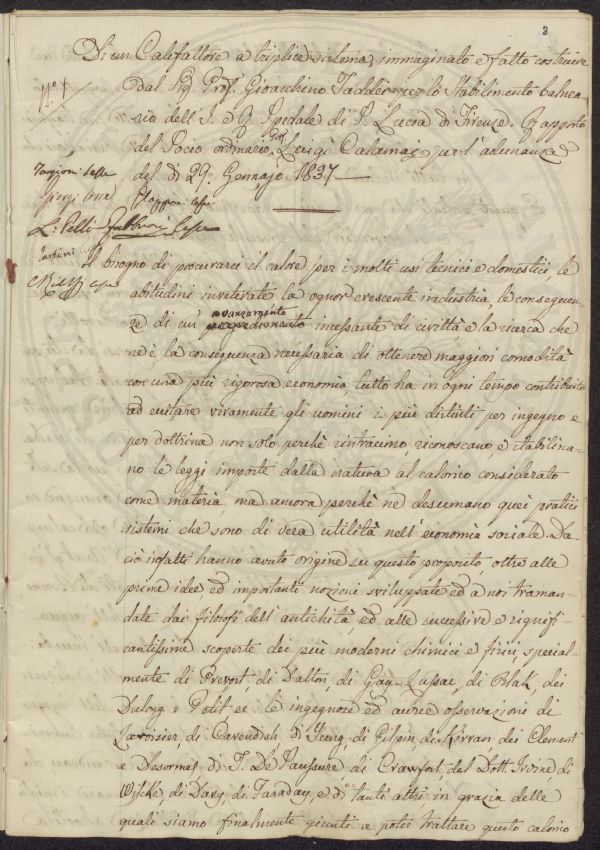 3
Di un Calefattore a triplice sistema immaginato e fatto costruire
dal Sig. Prof. Gioacchino Taddei per lo Stabilimento balnea-
rio dell' I. e R. Spedale di S. Lucia di Firenze. Rapporto
del Socio ordinario Prof. Luigi Calamai per l'adunanza
del dì 29. Gennajo 1837.
Targioni lesse
lesse
L. Pelli Fabbroni lesse
Il bisogno di procurarci il calore per i molti usi tecnici e domestici, le
abitudini inveterate la ognor crescente industria, le conseguen-
avanzamento
ze di un incessante di civiltà e la ricerca che
ne è la conseguenza necessaria di ottenere maggiori comodità
con una più rigorosa economia tutto ha in ogni tempo contribuito
ad eccitare vivamente gli uomini i più distinti per ingegno e
per dottrina non solo perchè rintraccino, riconoscano e stabilisca-
no le leggi imposte dalla natura al calorico considerato
come materia ma ancora perchè ne desumano quei pratici
sistemi che sono di vera utilità nell' economia sociale. Da
ciò infatti hanno avuto origine su questo proposito, oltre alle
prime idee, ed importanti nozioni sviluppate ed a noi traman-
date dai filosofi dell' antichità, ed alle successive e signifi-
cantissime scoperte dei più moderni chimici e fisici, special-
mente di Prevost, di Dalton, di Gay-Lussac, di Blak, dei
Dulong e Petit ec: le ingegnose ed auree osservazioni di
Lavoisier, di Cavendish di Young, di Gilpin, di Kirwan, dei Clement
e Desormes di T. De Saussure, di Crawfort, del Dott. Irvine, di
Wilcke, di Davy, di Faraday, e di tanti altri in grazia delle
quali siamo finalmente giunti a poter trattare questo calorico